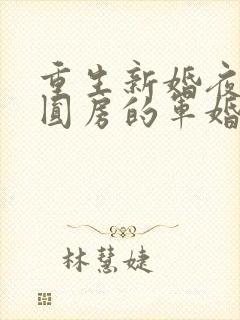 重生新婚夜
圆房的军婚
林慧婕